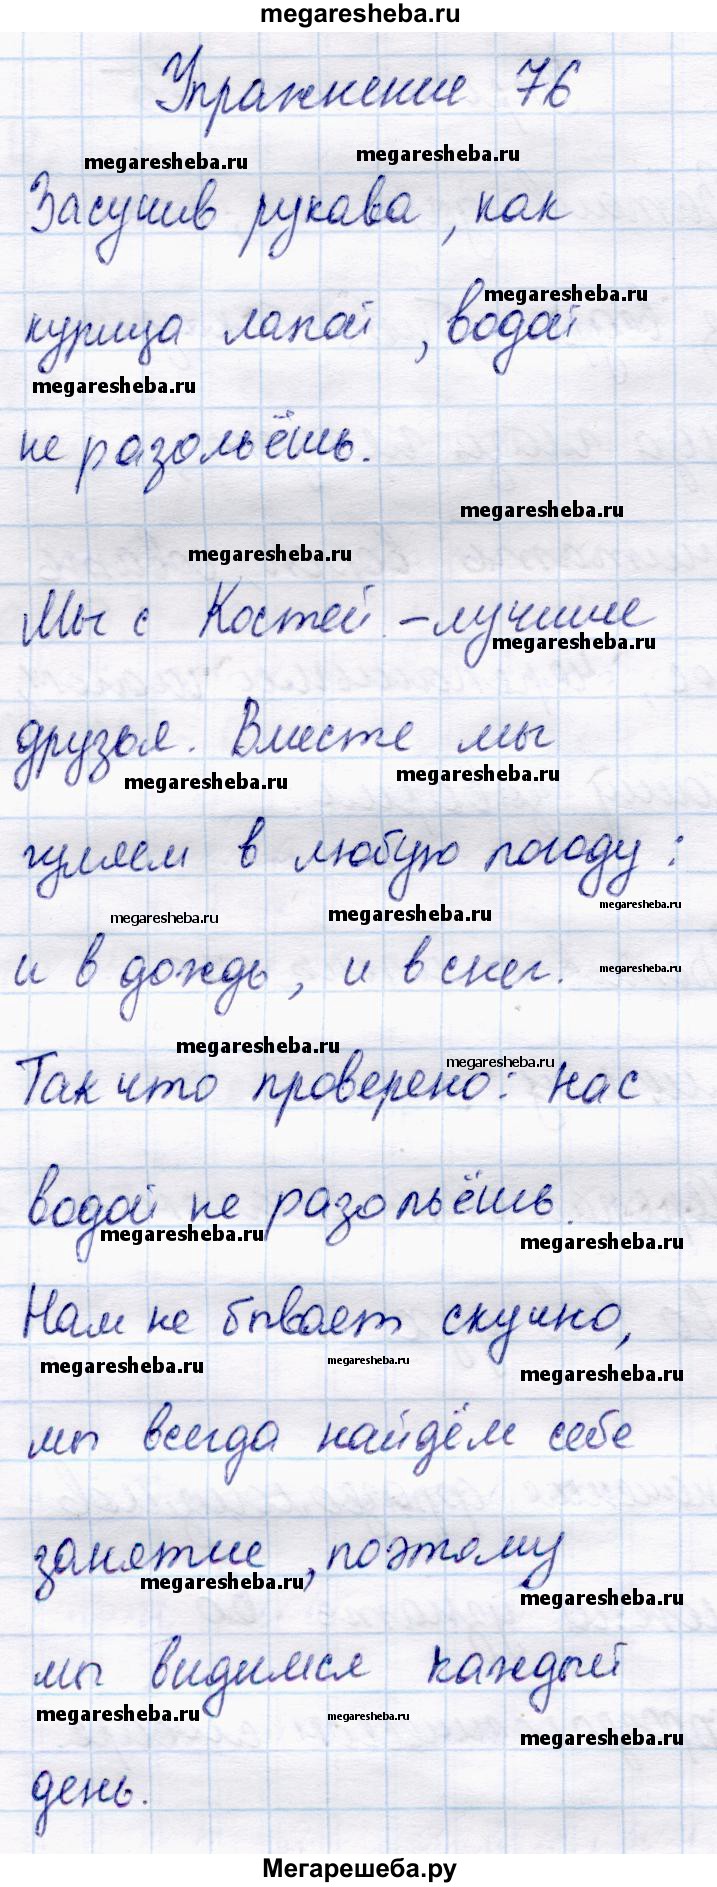 megaresheba.ru
Упражнение 76
megaresheba.ru megaresheba.ru
Засучив рукава, как
megaresheba.ru
курица лапой, водой
megaresheba.ru
не разольёшь.
megaresheba.ru
megaresheba.ru
Мы с Костей - лучшие
megaresheba.ru
друзья. Вместе мы
megaresheba.ru megaresheba.ru
гуляем в любую погоду:
megaresheba.ru megaresheba.ru megaresheba.ru
и в дождь, и в снег.
megaresheba.ru
megaresheba.ru megaresheba.ru
Так что проверено: нас
водой не разольёшь.
megaresheba.ru megaresheba.ru
Нам не бывает скучно,
megaresheba.ru megaresheba.ru megaresheba.ru
мы всегда найдём себе
занятие, поэтому
megaresheba.ru megaresheba.ru
мы видимся каждый
megaresheba.ru megaresheba.ru megaresheba.ru
день.
Мегарешеба.ру